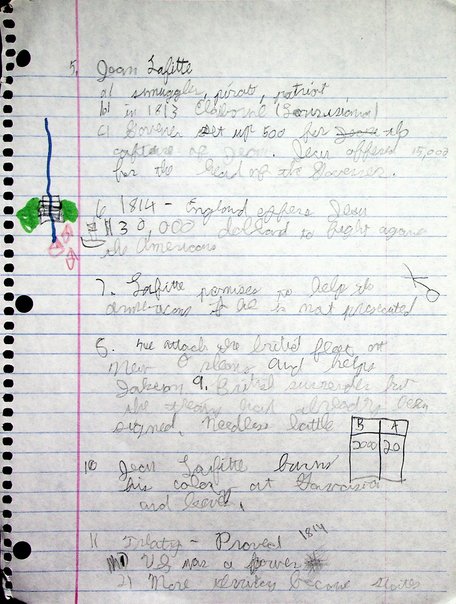 5. Jean Lafitte
a) smuggler, pirate, patriot
b) in 1813 Claiborne (Louisiana)
c) Govener set up 500 for the
capture of Jean. Jean offered 15,000
for the head of the Govener.
6. 1814 - England offers Jean
$30,000 to fight
the Americans
7. Lafitte promises to help the
if he is not prosecuted
8. he attack the British fleet at
New and helps
9. British surrender but
the treaty had already been
signed. Needless battle
B A
2000 20
10 Jean Lafitte burns
his at
and
11 Treaty - 1814
1) US was a power
2) More states